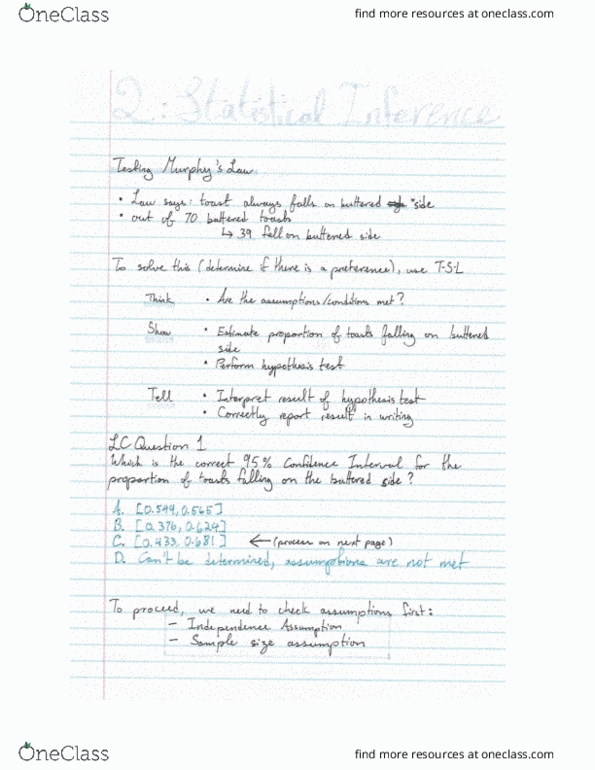 OneClass
find more resources at oneclass.com
2: Statistical Inference
Testing Murphy's Law
• Law says: toast always falls on buttered side
• out of 70 buttered toasts
↳ 39 fell on buttered side
To solve this (determine if there is a preference), use T-S-L
Think • Are the assumptions/conditions met?
Show • Estimate proportion of toasts falling on buttered
side
• Perform hypothesis test
Tell • Interpret result of hypothesis test
• Correctly report result in writing
LC Question 1
Which is the correct 95% Confidence Interval for the
proportion of toasts falling on the buttered side?
A. [0.549, 0.565]
B. [0.376, 0.624]
C. [0.433, 0.681] ← (process on next page)
D. Can't be determined, assumptions are not met
To proceed, we need to check assumptions first:
– Independence Assumption
– Sample size assumption
OneClass
find more resources at oneclass.com